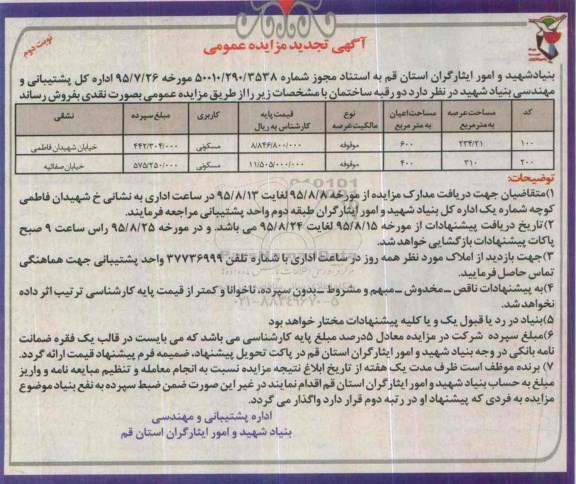 آگهی تجدید مزایده عمومی
نوبت دوم
بنیادشهید و امور ایثارگران استان قم به استناد مجوز شماره ۵۰۰۱۰/۲۹۰/۳۵۳۸ مورخه ۹۵/۷/۲۶ اداره کل پشتیبانی و
مهندسی بنیاد شهید در نظر دارد دو رقبه ساختمان با مشخصات زیر را از طریق مزایده عمومی بصورت نقدی بفروش رساند
کد | مساحت عرصه به متر مربع | مساحت اعیان به متر مربع | نوع مالکیت عرصه | قیمت پایه کارشناس به ریال | کاربری | مبلغ سپرده | نشانی
۱۰۰ | ۲۳۴/۲۱ | ۶۰۰ | موقوفه | ۸/۸۴۶/۸۰۰/۰۰۰ | مسکونی | ۴۴۲/۳۰۴/۰۰۰ | خیابان شهیدان فاطمی
۲۰۰ | ۳۱۰ | ۴۰۰ | موقوفه | ۱۱/۵۰۵/۰۰۰/۰۰۰ | مسکونی | ۵۷۵/۲۵۰/۰۰۰ | خیابان صفائیه
توضیحات:
۱)متقاضیان جهت دریافت مدارک مزایده از مورخه ۹۵/۸/۸ لغایت ۹۵/۸/۱۳ در ساعت اداری به نشانی خ شهیدان فاطمی
کوچه شماره یک اداره کل بنیاد شهید و امور ایثارگران طبقه دوم واحد پشتیبانی مراجعه فرمایند.
۲)تاریخ دریافت پیشنهادات از مورخه ۹۵/۸/۱۵ لغایت ۹۵/۸/۲۴ می باشد. و در مورخه ۹۵/۸/۲۵ راس ساعت ۹ صبح
پاکات پیشنهادات بازگشایی خواهد شد.
۳)جهت بازدید از املاک مورد نظر همه روز در ساعت اداری با شماره تلفن ۳۷۷۳۶۹۹۹ واحد پشتیبانی جهت هماهنگی
تماس حاصل فرمایید.
۴)به پیشنهادات ناقص ـ مخدوش ـ مبهم و مشروط ـ بدون سپرده، ناخوانا و کمتر از قیمت پایه کارشناسی ترتیب اثر داده
نخواهد شد.
۵)بنیاد در رد یا قبول یک و یا کلیه پیشنهادات مختار خواهد بود
۶)مبلغ سپرده شرکت در مزایده معادل ۵درصد مبلغ پایه کارشناسی می باشد که می بایست در قالب یک فقره ضمانت
نامه بانکی در وجه بنیاد شهید و امور ایثارگران استان قم در پاکت تحویل پیشنهاد، ضمیمه فرم پیشنهاد قیمت ارائه گردد.
۷) برنده موظف است ظرف مدت یک هفته از تاریخ ابلاغ نتیجه مزایده نسبت به انجام معامله و تنظیم مبایعه نامه و واریز
مبلغ به حساب بنیاد شهید و امور ایثارگران استان قم اقدام نمایند در غیر این صورت ضمن ضبط سپرده به نفع بنیاد موضوع
مزایده به فردی که پیشنهاد او در رتبه دوم قرار دارد واگذار می گردد.
اداره پشتیبانی و مهندسی
بنیاد شهید و امور ایثارگران استان قم
۰۲۱-۸۸۳۴۹۶۷۰-۵